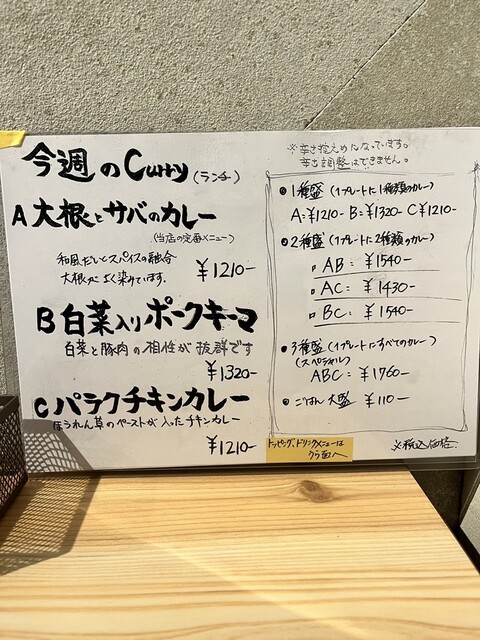 今週のCurry(ランチ)
A 大根とサバのカレー
(当店の定番メニュー)
和風だしとスパイスの融合
大根がよく染みています。
¥1210-
B 白菜入りポークキーマ
白菜と豚肉の相性が抜群です
¥1320-
C パラクチキンカレー
ほうれん草のペーストが入ったチキンカレー
¥1210-
※辛さ控えめになっています。
辛さ調整はできません。
●1種盛(1プレートに1種類のカレー)
A=¥1210- B=¥1320- C¥1210-
●2種盛(1プレートに2種類のカレー)
AB=¥1540-
AC=¥1430-
BC=¥1540-
●3種盛(1プレートにすべてのカレー)
(スペシャル)
ABC=¥1760-
●ごはん大盛 ¥110-
トッピング、ドリンクメニューは
うら面へ
※税込価格